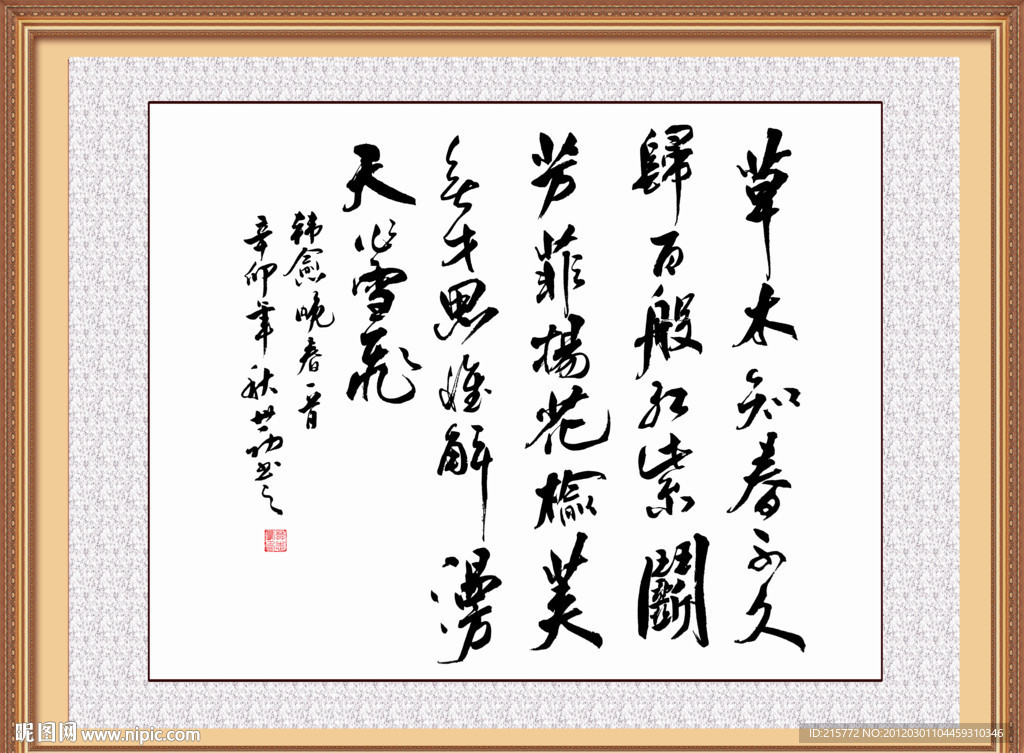 草木知春不久
歸百般红紫鬭
芳菲楊花榆荚
無才思惟解漫
天作雪飛
韩愈晚春一首
辛卯年秋世功书之
昵图网 www.nipic.com
ID:215772 NO:20120301104459310346